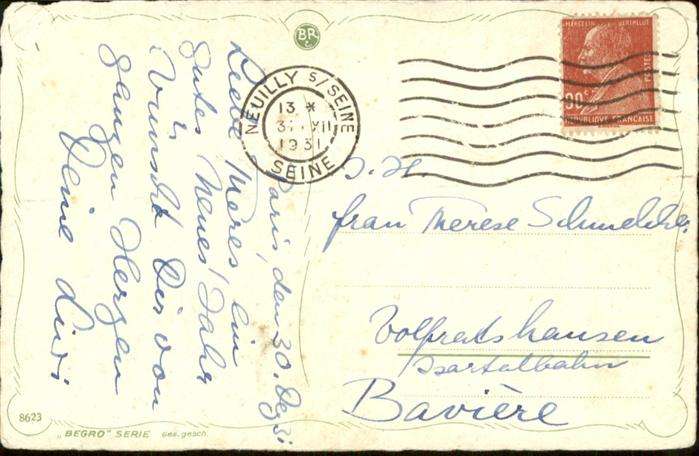 Paris, den 30. Dez 31
Liebe Meres, ein
gutes Neues Jahr
wünscht Dir von
ganzen Herzen
Deine Luisi
BR
NEUILLY S/SEINE
13 *
31 XII
1931
SEINE
MARCELIN BERTHELOT
POSTES
90c
REPUBLIQUE FRANÇAISE
S. H.
frau Therese
Wolfratshausen
Isartalbahn
Bavière
8623
„BEGRO" SERIE ges. gesch.